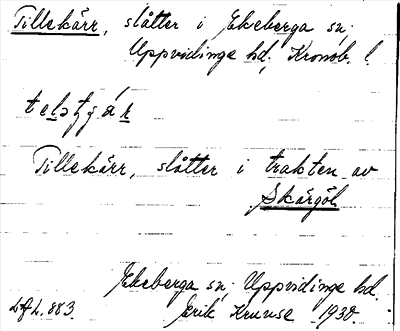 Tillekärr, slåtter i Ekeberga sn,
Uppvidinge hd, Kronob. l.
Tillekärr, slåtter i trakten av
Skärgöl
Ekeberga sn, Uppvidinge hd.
Erik Kruuse 1930.